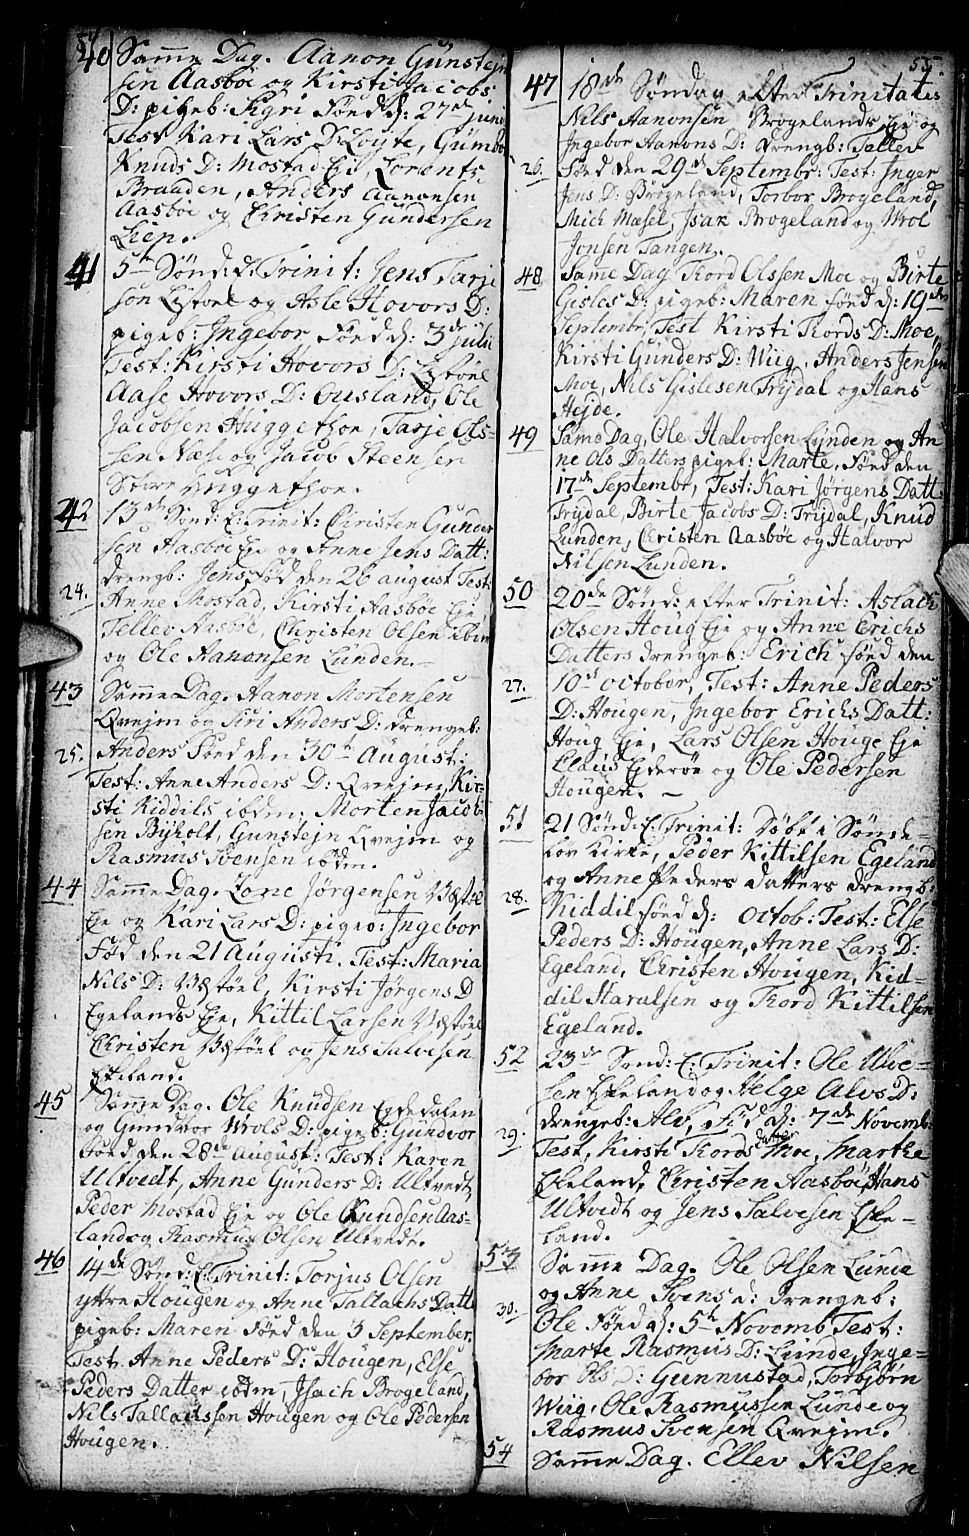 54
40 Samme Dag. Aanon Gunstejn
sen Aasböe og Kirsti Jacobs
D: pigeb: Sigri Föed d: 27de juni
Test Kari Lars D: Löyte, Gumbor
Knuds D: Mostad Eje, Lorentz
Braaden, Anders Aanonsen
Aasböe og Christen Gundersen
Liep.
41 5te Sönd: E: Trinit: Jens Tarje
sön Listöel og Asle Hovors D:
pigeb: Ingebor, Föed d: 3de julii
Test: Kirsti Hovors D: Listöel
Aase Hovors D: Ousland, Ole
Jacobsen Huggethoe, Tarje Ols-
sen Næse og Jacob Steensen
Store Huggethoe.
42 13de Sönd: E: Trinit: Christen Gunder
sen Aasböe Eje og Anne Jens Datt:
24. drengb: Jens, Föd den 26 august Test:
Anne Mostad, Kirsti Aasböe Eje
Tellev Aasböe, Christen Olsen ibm
og Ole Aanonsen Lunden.
43 Samme Dag. Aanon Mortensen
Qvejm og Siri Anders D: drengeb:
25. Anders Föed den 30te August:
Test: Anne Anders D: Qvejm, Kir-
sti Kiddils ibdm, Morten Jacob
sen Byholt, Gunstejn Qvejm og
Rasmus Svensen ibdm.
44 Samme Dag. Zone Jörgensen Væstöl
Eje og Kari Lars D: pigeb: Ingebor
Föd den 21 Augusti. Test: Maria
Nils D: Væstöel, Kirsti Jörgens D
Egelands Eje, Kittil Larsen Væstöel
Christen Væstöel og Jens Salvesen
Ekeland.
45 Samme Dag. Ole Knudsen Egdedalen
og Gundvor Wrols D: pigeb: Gundvor
Föed den 28de August: Test: Karen
Ultvedt, Anne Gunders D: Ultvedt,
Peder Mostad Eje og Ole Knudsen Aas-
land og Rasmus Olsen Ultvedt.
46 14de Sönd: E: Trinit: Torjus Olsen
yttre Hougen og Anne Tallachs Datt
pigeb: Maren Föed den 3 September,
Test. Anne Peders D: Hougen, Else
Peders Datter ibdm, Isach Brogeland,
Nils Tallachssen Hougen og Ole Pedersen
Hougen.
55.
47 18de Söndag efter Trinitatis
Nils Aanonsen Brogelands Eje og
Ingebor Aanons D: drengb: Tallev
26. Föed den 29de Septembr: Test: Inger
Jens D: Brögeland, Torbor Brogeland,
Mich Mæsel, Isak Brogeland og Wrol
Jonsen Tangen.
48 Same Dag Tord Olssen Moe og Birte
Gisles D: pigeb: Maren föed d: 19de
Septembr, Test Kirsti Tords D: Moe,
Kirsti Gunders D: Wiig, Anders Jensen
Moe, Nils Gislesen Trydal og Hans
Hejde.
49 Same Dag, Ole Halvorsen Lunden og An
ne Ols Datters pigeb: Marte, Föed den
17de Septembr, Test: Kari Jörgens Datt:
Trydal, Birte Jacobs D: Trydal, Knud
Lunden, Christen Aasböe og Halvor
Nilsen Lunden.
50 20de Sönd: efter Trinit: Aslach
Olsen Houg Eje og Anne Erichs
Datters drengeb: Erich föed den
27. 10de october, Test: Anne Peders
D: Hougen, Ingebor Erichs Datt:
Houg Eje, Lars Olsen Houge Eje
Claus Egderöe og Ole Pedersen
Hougen. –
51 21 Sönd: E: Trinit: Döbt i Sönde-
löv Kirke, Peder Kittilsen Egeland
og Anne Peders datters drengb:
28. Kiddil föed d: octob: Test: Else
Peders D: Hougen, Anne Lars D:
Egeland, Christen Hougen, Kid-
dil Haralsen og Tord Kittilsen
Egeland.
52 23de Sönd: E: Trinit: Ole Ulve-
sen Ekeland og Helge Alvs D:
drengeb: Alv, Föd d: 7de Novemb:
29. Test, Kirsti Tords Datter Moe, Marthe
Ekeland, Christen Aasböe, Hans
Ultvedt og Jens Salvesen Eke-
land.
53 Samme Dag. Ole Olsen Lunde
og Anne Svens d: Drengeb:
30. Ole Föed d: 5te Novemb Test:
Marte Rasmus D: Lunde, Inge-
bor Ols D: Gunnustad, Torbjörn
Wiig, Ole Rasmussen Lunde og
Rasmus Svensen Qvejm.
54 Samme Dag. Ellev Nilsen